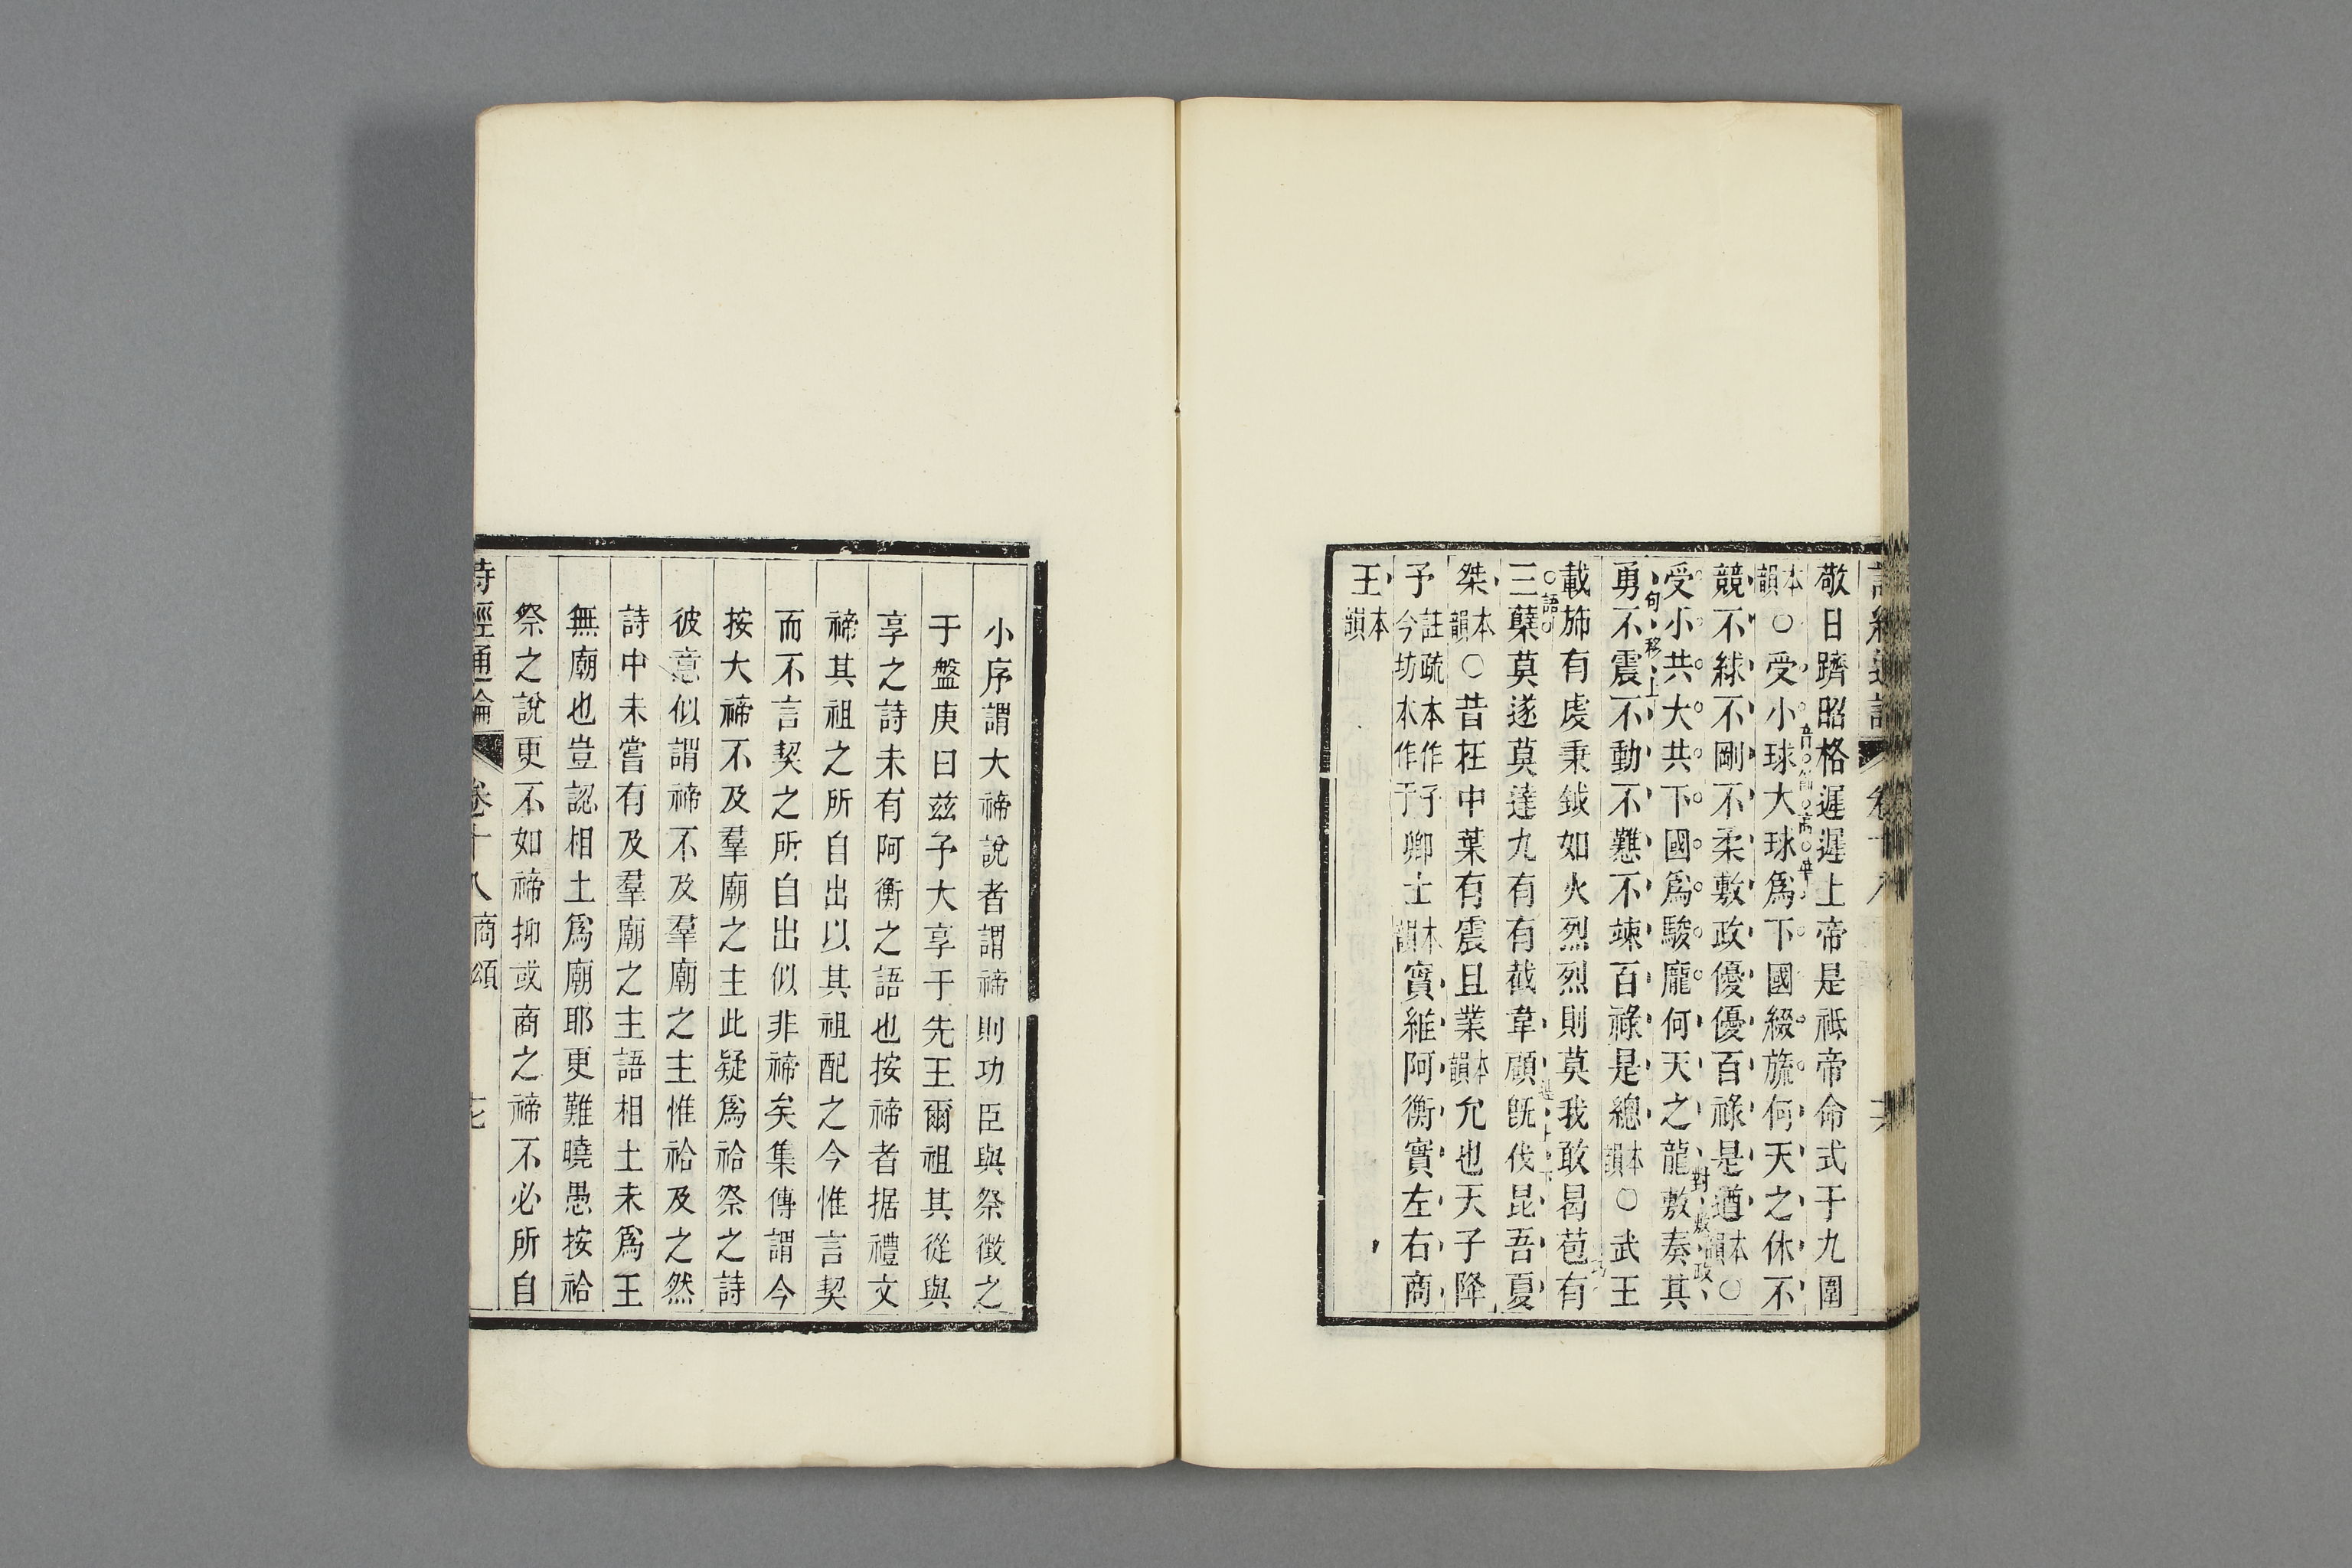 敬日躋昭格遲遲上帝是祗帝命式于九圍
本韻○受小球大球爲下國綴旒何天之休不
競不絿不剛不柔敷政優優百祿是遒本韻○
受小共大共下國爲駿龐何天之龍敷奏其
勇不震不動不戁不竦百祿是總本韻○武王
載斾有虔秉鉞如火烈烈則莫我敢曷苞有
三蘖莫遂莫達九有有截韋顧旣伐昆吾夏
桀本韻○昔在中葉有震且業本韻允也天子降
予註疏本作予今坊本作于卿士本韻實維阿衡實左右商
王本韻
小序謂大禘說者謂禘則功臣與祭徵之
于盤庚曰茲予大享于先王爾祖其從與
享之詩未有阿衡之語也按禘者据禮文
禘其祖之所自出以其祖配之今惟言契
而不言契之所自出似非禘矣集傳謂今
按大禘不及羣廟之主此疑爲祫祭之詩
彼意似謂禘不及羣廟之主惟祫及之然
詩中未嘗有及羣廟之主語相土未爲王
無廟也豈認相土爲廟耶更難曉愚按祫
祭之說更不如禘抑或商之禘不必所自
詩經通論 卷十八商頌